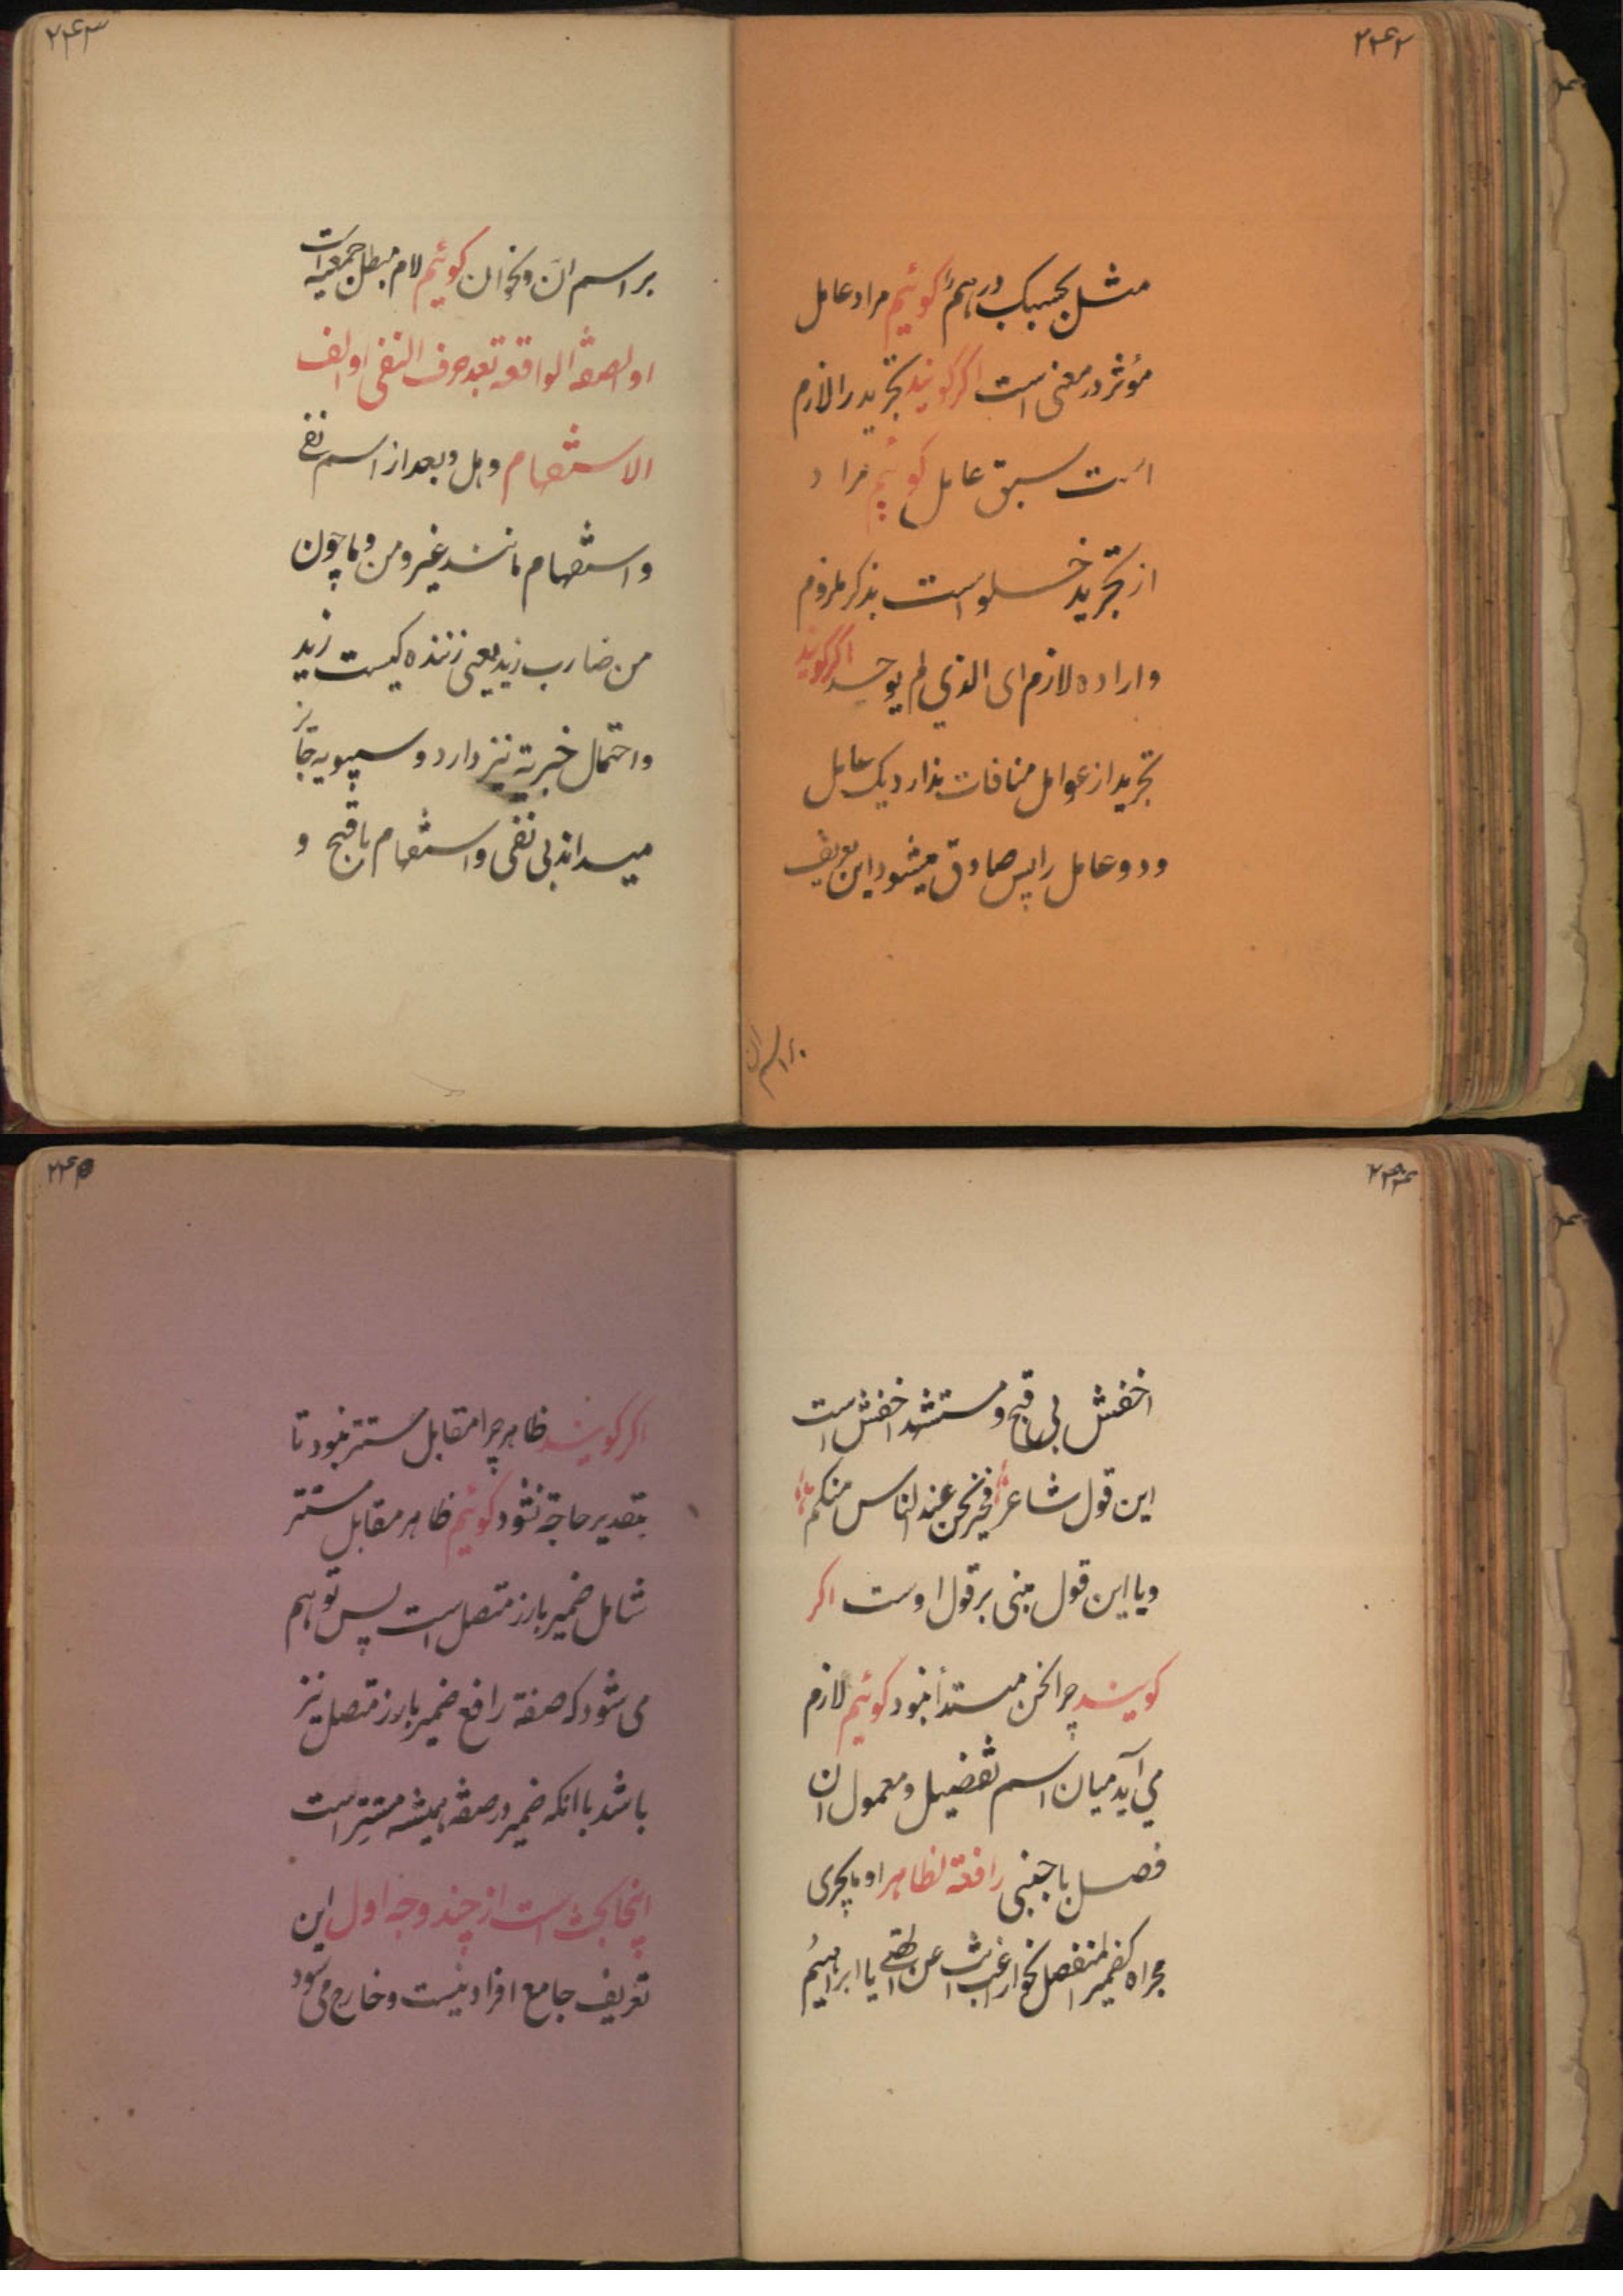 ۲۴۲
مثل بحسبک درهم گوئیم مراد عامل
مؤثر در معنی است اگر گویند تجرید را لازم
است سبق عامل گوئیم مراد
از تجرید خلو است بذکر ملزوم
و اراده لازم ای الذی لم یوجد اگر گویند
تجرید از عوامل منافات ندارد یک عامل
و دو عامل را پس صادق میشود این تعریف
بر اسم ان
۲۴۳
بر اسم انّ و نحو ان گوئیم لام مبطل جمعیة است
او الصفة الواقعة بعد حرف النفی او الف
الاستفهام و هل و بعد از اسم نفی
و استفهام مانند غیر و من و ما چون
من ضارب زید یعنی زننده کیست زید
و احتمال خبریة نیز دارد و سیبویه جائز
میداند بی نفی و استفهام با قبح و
۲۴۴
اخفش بی قبح و مستشهد اخفش است
این قول شاعر فخیر نحن عند الناس منکم
و یا این قول مبنی بر قول اوست اگر
گویند چرا نحن مبتدا نبود گوئیم لازم
می آید میان اسم تفضیل و معمول ان
فصل باجنبی رافعة لظاهر او ما یجری
مجراه کضمیر المنفصل نحو اراغب انت عن الهتی یا ابراهیم
۲۴۵
اگر گویند ظاهر چرا مقابل مستتر نبود تا
بتقدیر حاجة نشود گوئیم ظاهر مقابل مستتر
شامل ضمیر بارز متصل است پس توهم
می شود که صفة رافع ضمیر بارز متصل نیز
باشد با انکه ضمیر در صفة همیشه مستتر است
اینجا بحث است از چند وجه اول این
تعریف جامع افراد نیست و خارج می شود